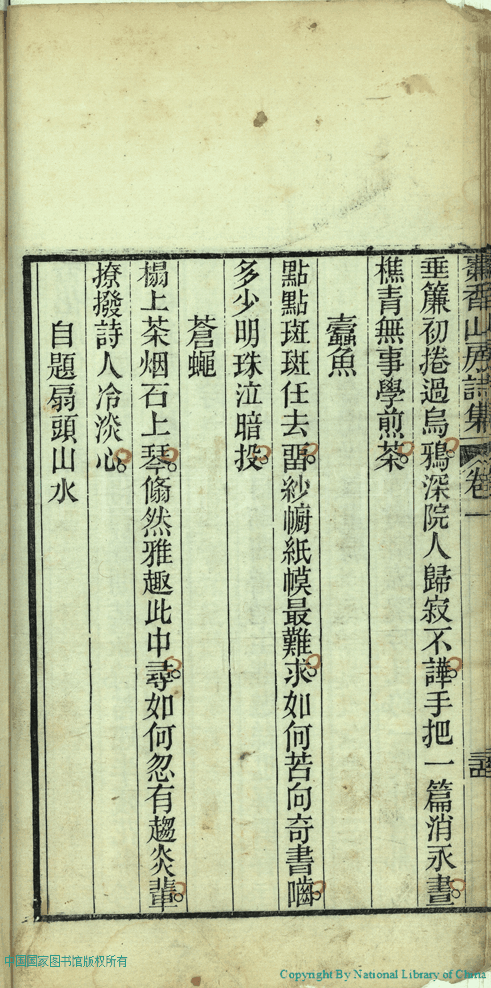 香山房詩集 卷一
垂簾初捲過烏鴉深院人歸寂不譁手把一篇消永晝
樵青無事學煎茶
蠹魚
點點斑斑任去畱紗幮紙幙最難求如何苦向奇書嚙
多少明珠泣暗投
蒼蠅
榻上茶烟石上琴翛然雅趣此中尋如何忽有趨炎輩
撩撥詩人冷淡心
自題扇頭山水
中国国家图书馆版权所有
Copyright By National Library of China